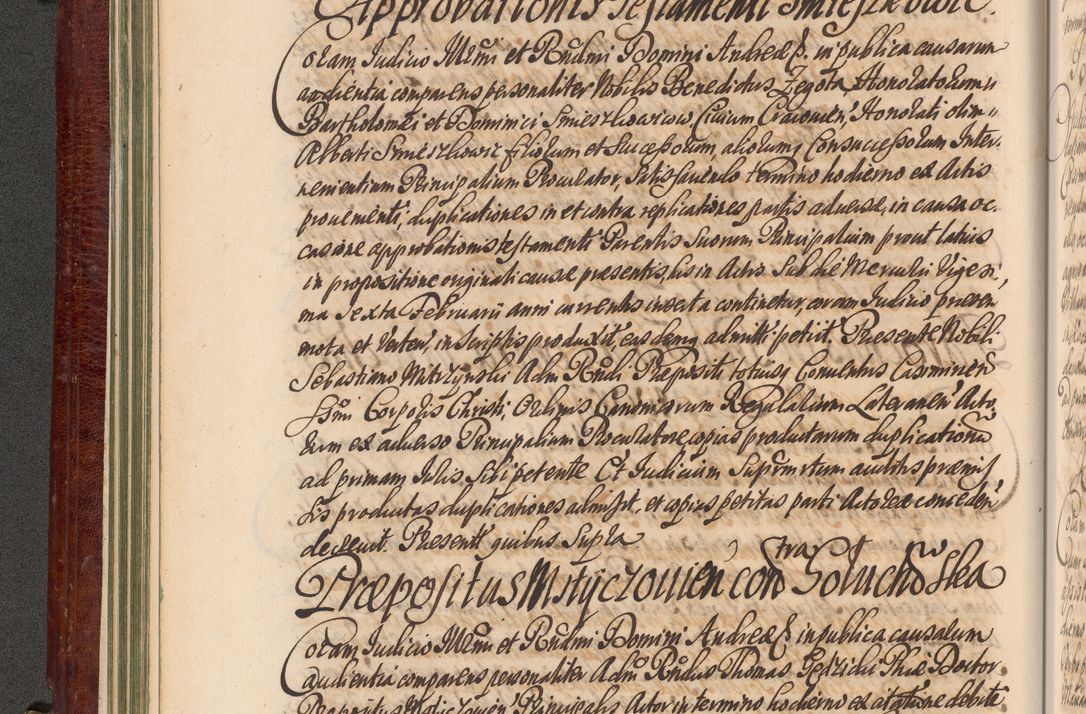 Approbationis Testamenti Smieszkowic.
Coram Judicio Illmi et Rndmi Domini Andreæ S. in publica causarum
audientia comparens personaliter Nobilis Benedictus Zegota Honoratorum
Bartholomæi et Dominici Smieszkowicow Civium Cracouien, Honorati olim
Alberti Smieszkowic filiorum et Successorum, aliorumq Consuccessorum Inter-
uenientium Principalium Procurator, Satisfaciendo termino hodierno ex Actis
prouenienti, duplicationes in et contra replicationes partis aduersæ, in causa oc
casione approbationis testamenti Parentis Suorum Principalium prout latius
in propositione originali causæ præsentis, his in Actis Sub die Mercurii Vigesi
ma Sexta Februarii anni currentis inserta continetur, coram Judicio præsen
mota et verten, in Scriptis produxit, easdemq admitti petiit. Præsente Nobili
Sebastiano Mirzynski Adm Rndi Præpositi totiusq Conuentus Casimirien
Ssmi Corporis Christi, Ordinis Canonicorum Regularium Lateranen Acto
rum ex aduerso Principalium Procuratore copias productarum duplicationu
ad primam Juris Sibi petente Et Judicium Suprmrtum auditis præmis
sis productas duplicationes admisit, et copias petitas parti Actoreæ conceden
decreuit. Præsentt quibus Supra
Præpositus Mstyczouien contra Soluchowska
Coram Judicio Illmi et Rndmi Domini Andreæ S. in publica causarum
audientia comparens personaliter Adm Rndus Thomas Phiæ Doctor
Præpositus Principalis Actor in termino hodierno ex citatione debite